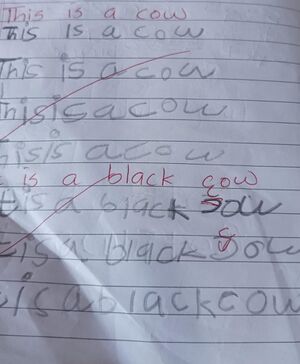 This is a cow
This is a cow
This is a cow
Thisisacow
hisis acow
t is a black cow
t is a black sow
t is a black cow
t is a blackcow